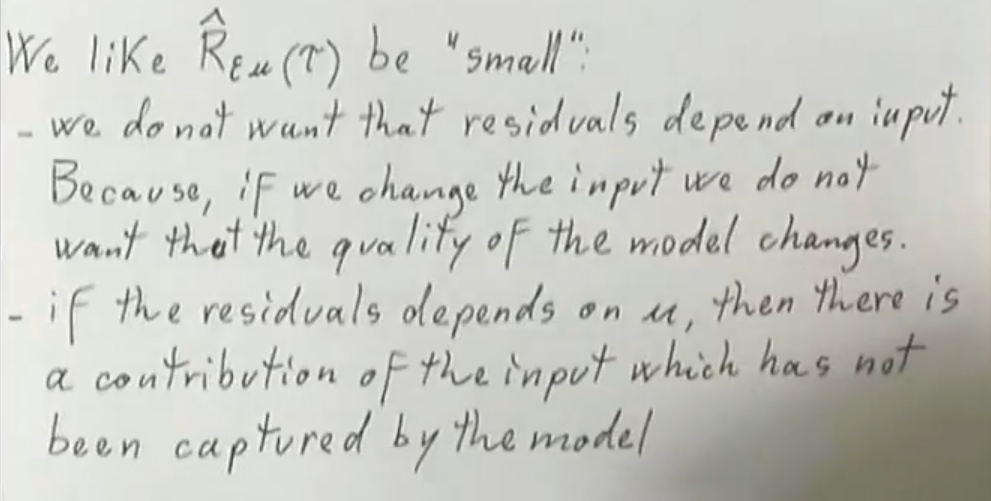 We like R̂εu(τ) be "small":
- we do not want that residuals depend on input.
Because, if we change the input we do not
want that the quality of the model changes.
- if the residuals depends on u, then there is
a contribution of the input which has not
been captured by the model